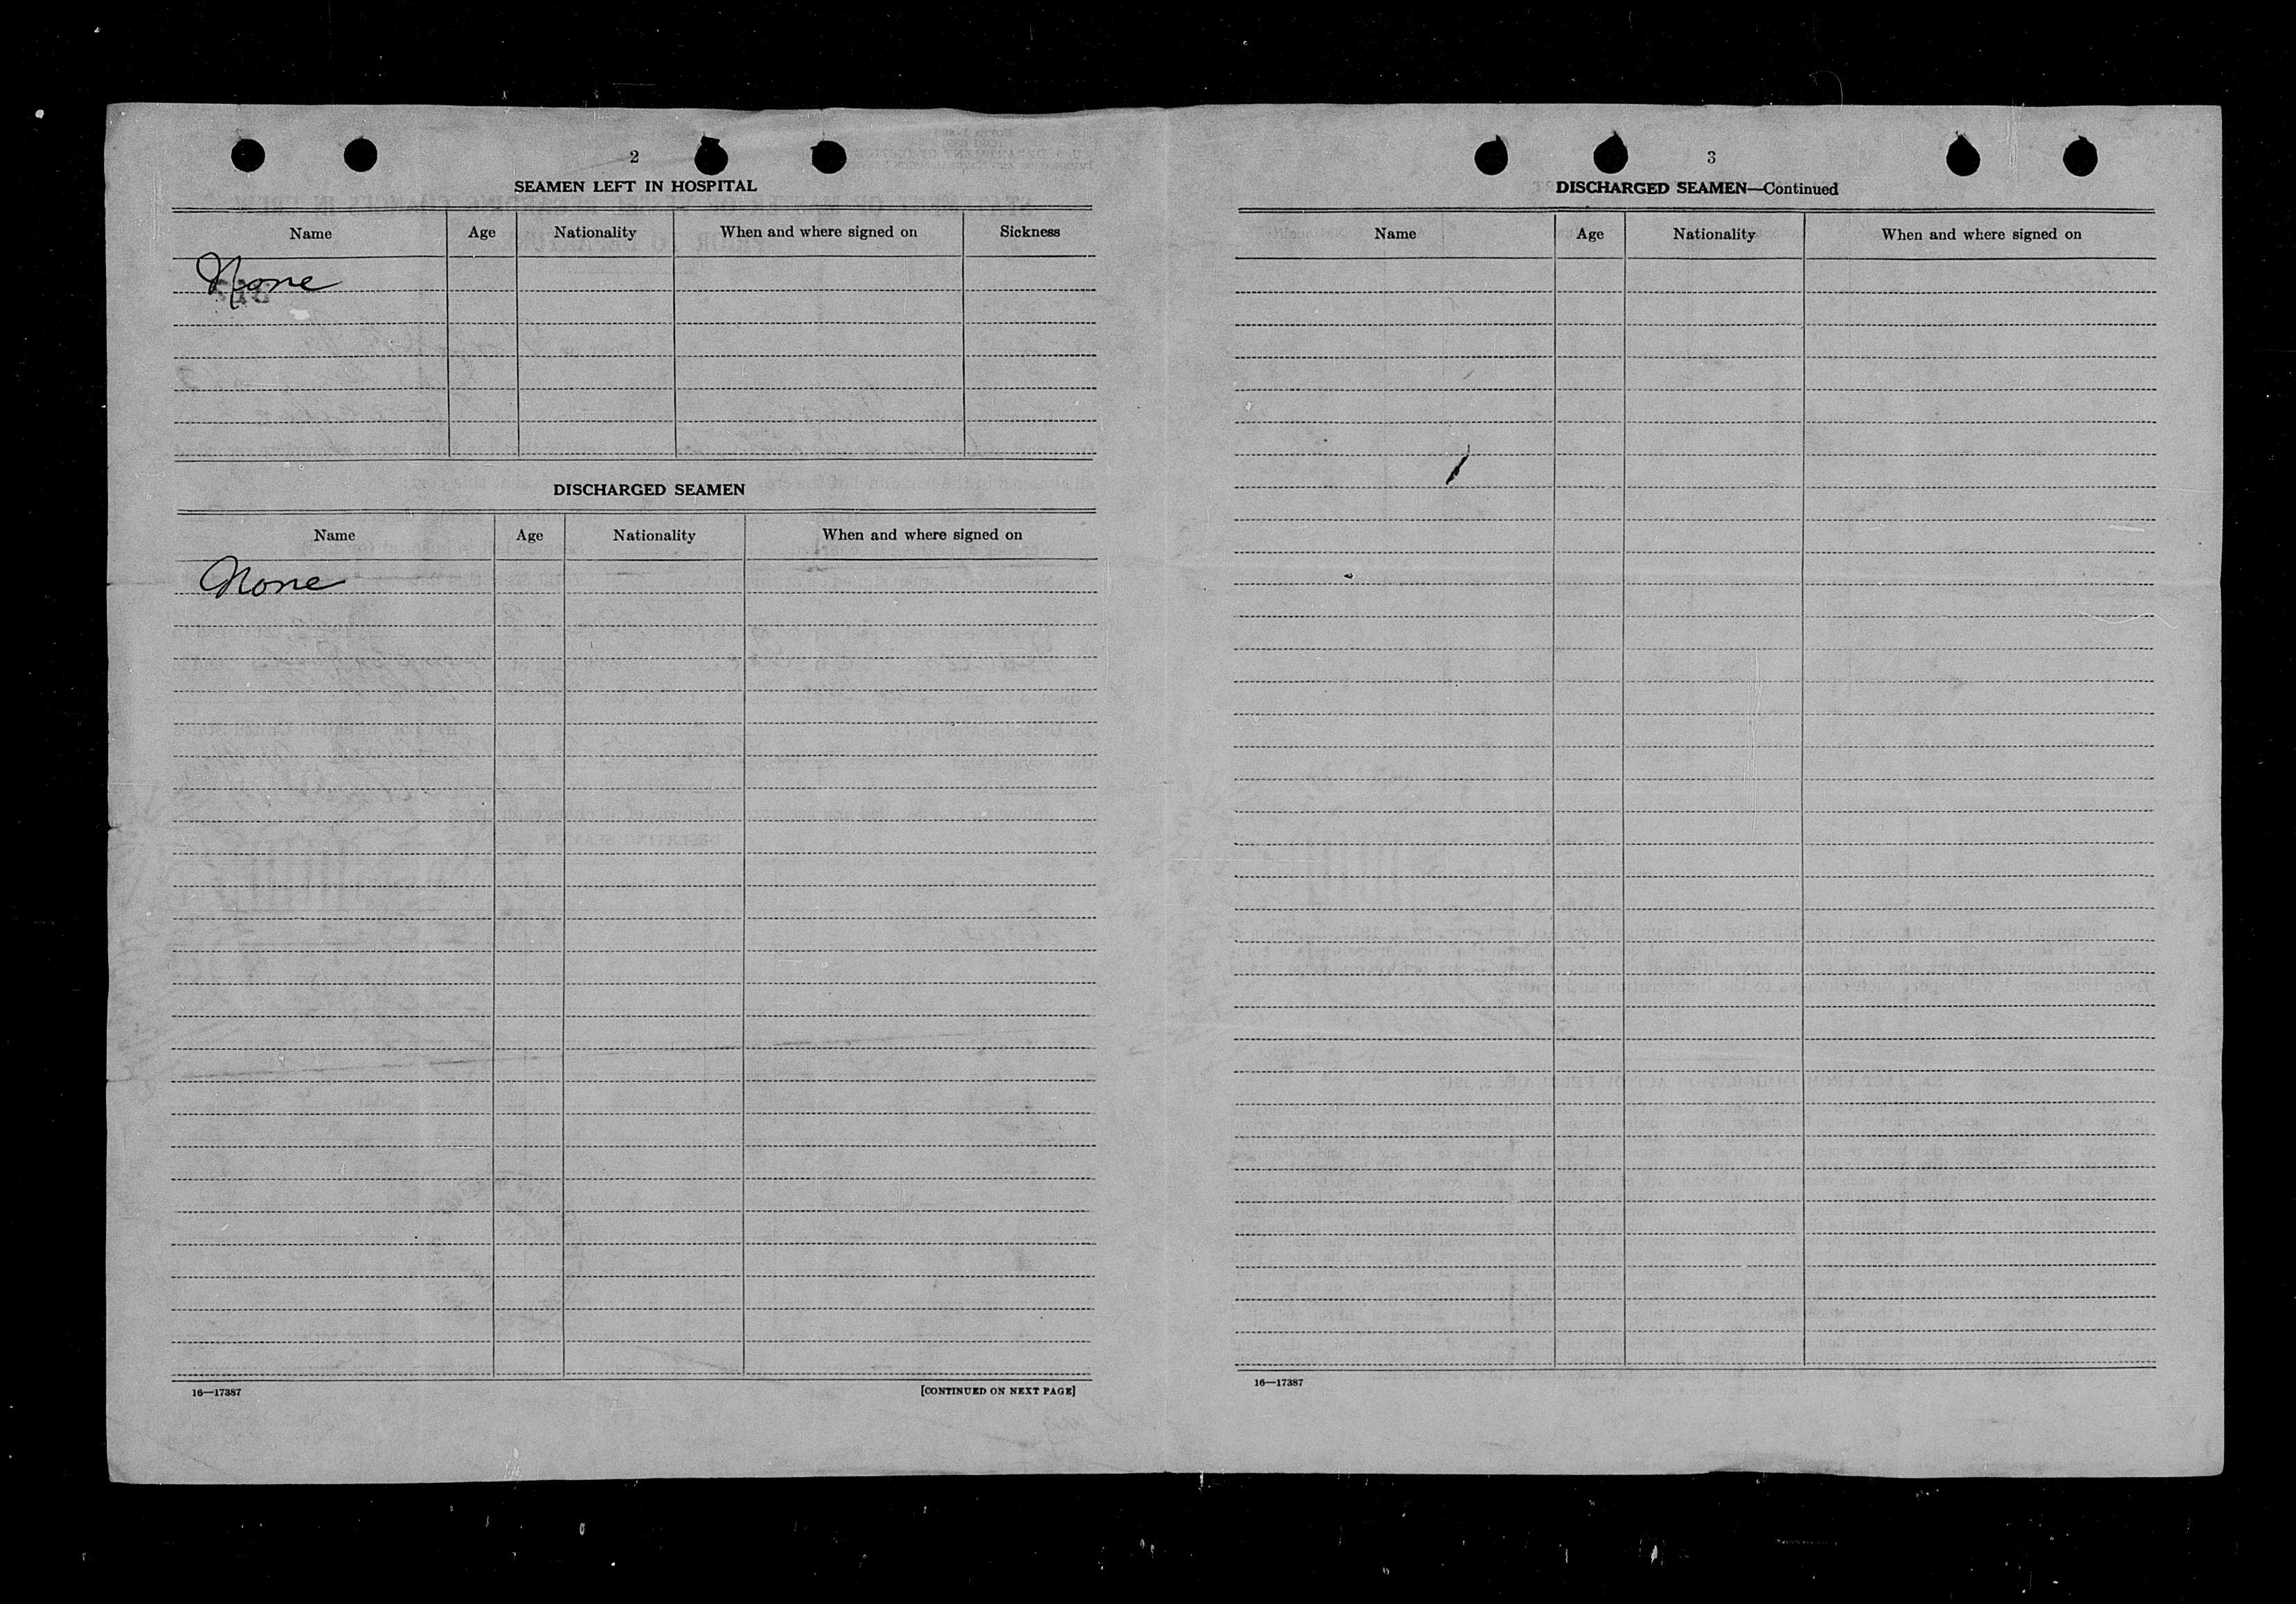 2
SEAMEN LEFT IN HOSPITAL
Name Age Nationality When and where signed on Sickness
None
DISCHARGED SEAMEN
Name Age Nationality When and where signed on
None
16—17387 [CONTINUED ON NEXT PAGE]
3
DISCHARGED SEAMEN—Continued
Name Age Nationality When and where signed on
16—17387